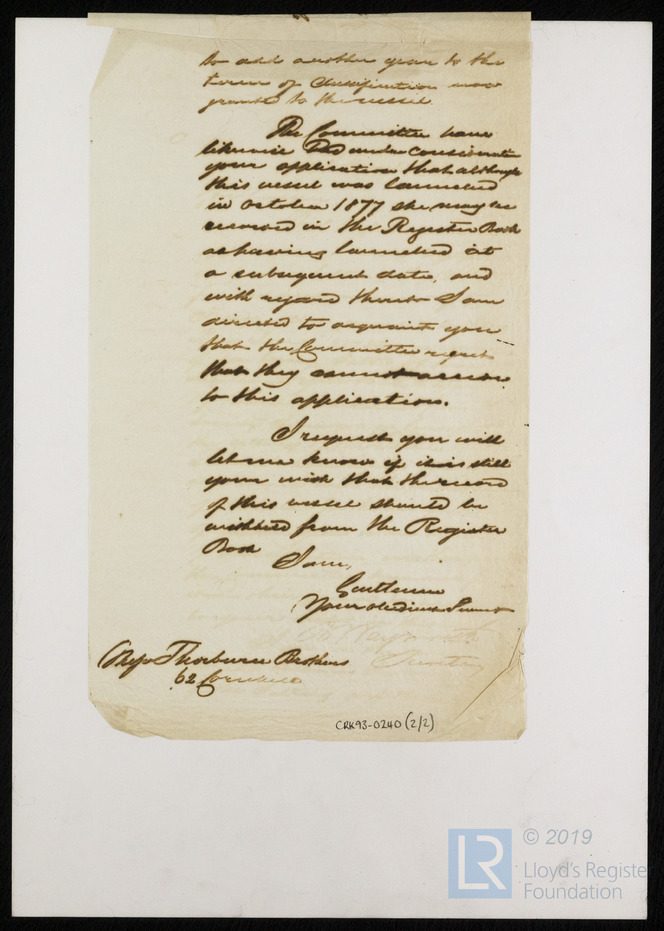 to add another year to the
term of Classification now
granted to the vessel.
The Committee have
likewise had under consideration
your application that although
this vessel was launched
in October 1877 she may be
recorded in the Register Book
as having launched at
a subsequent date, and
with regard thereto I am
directed to acquaint you
that the Committee regret
that they cannot accede
to this application.
I request you will
let me know if it is still
your wish that the record
of this vessel should be
withheld from the Register
Book
I am,
Gentlemen
Your obedient Servant
Secretary
Messrs Thorburn Brothers
62 Cornhill
CRK93-0240 (2/2)
LR © 2019
Lloyd's Register
Foundation